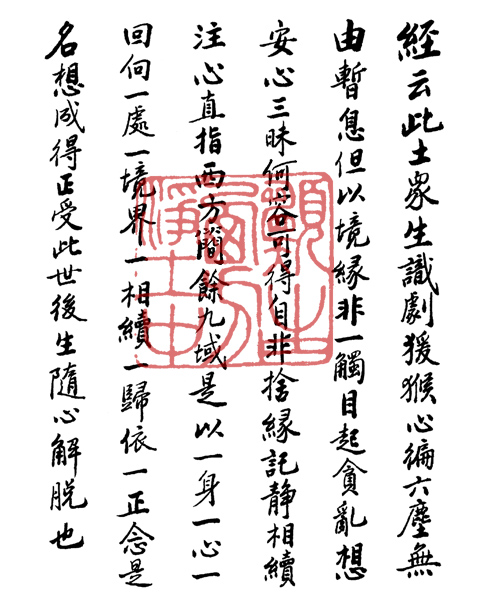 經云此土衆生識劇猨猴心徧六塵無
由暫息但以境緣非一觸目起貪亂想
安心三昧何容可得自非捨緣託静相續
注心直指西方簡餘九域是以一身一心一
回向一處一境界一相續一歸依一正念是
名想成得正受此世後生隨心解脱也
願生西方淨土中